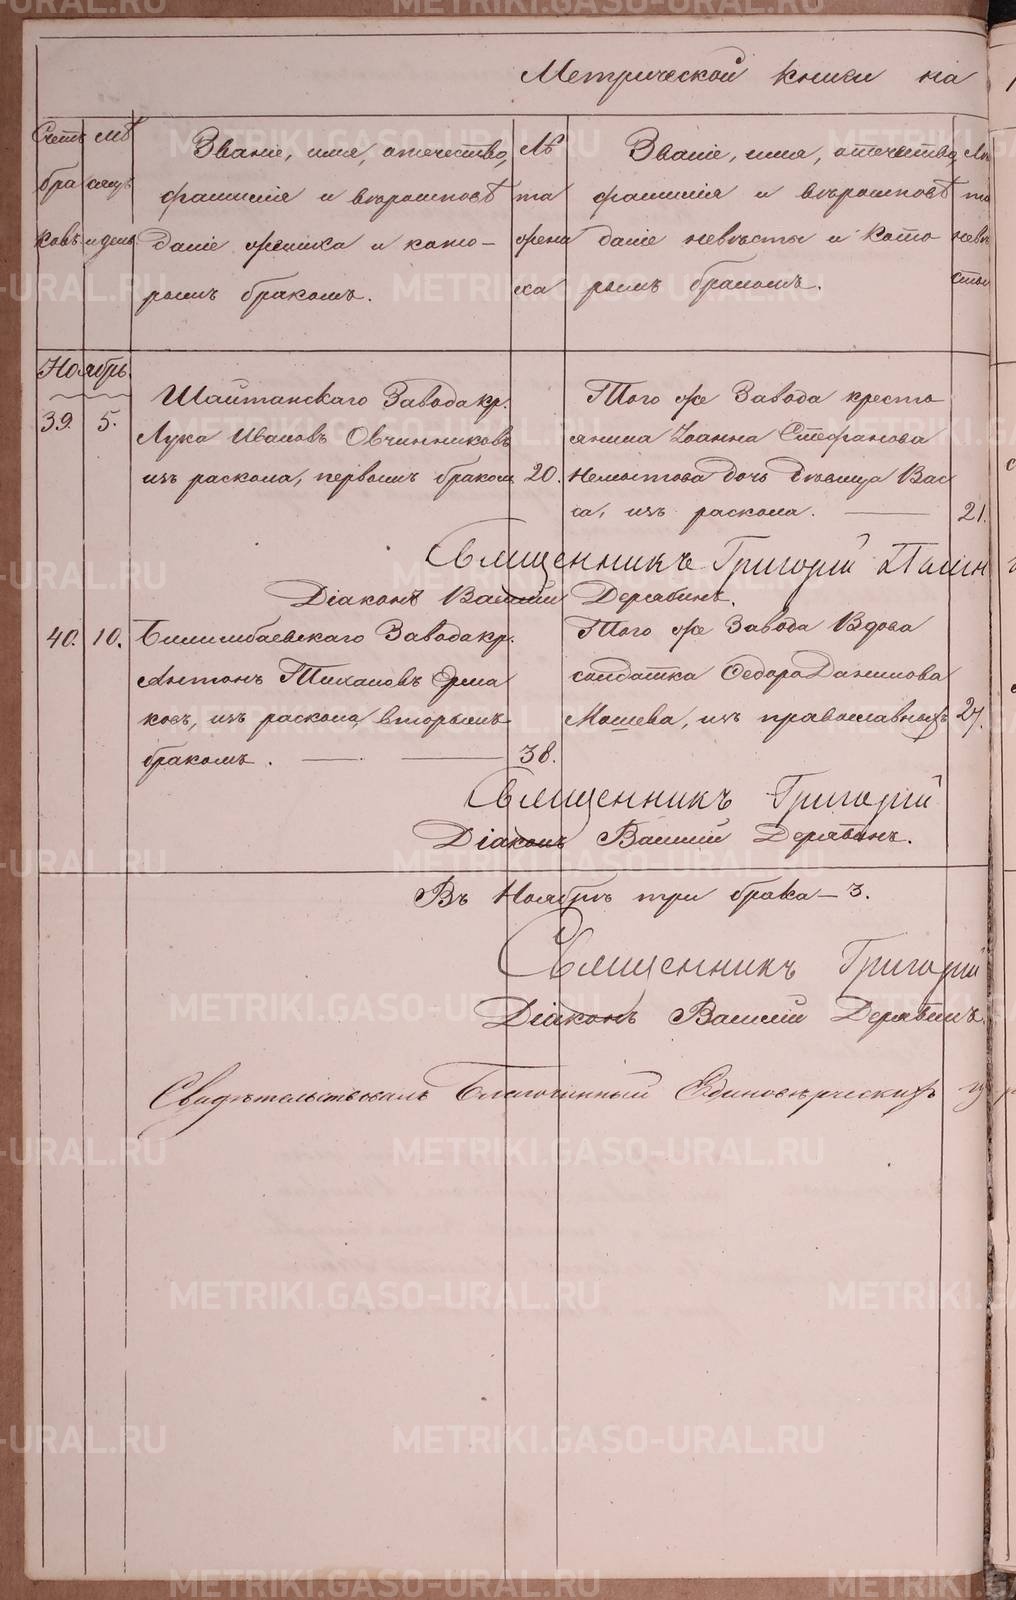 Метрической книги на
Счетъ
бра
ковъ
мѣ
сяцъ
и день
Званіе, имя, отечество,
фамилія и вѣроисповѣ
даніе жениха и кото-
рымъ бракомъ.
Лѣ
та
жени
ха
Званіе, имя, отечество,
фамилія и вѣроисповѣ
даніе невѣсты и кото
рымъ бракомъ.
Лѣ
та
невѣ
сты
Ноябрь.
39. 5.
Шайтанскаго Завода кр.
Лука Ивановъ Овчинниковъ
изъ раскола, первымъ бракомъ
20.
Того же Завода кресть
янина Іоанна Стефанова
дочь дѣвица Вас
са, изъ раскола.
21.
Священникъ Григорій
Діаконъ Василій Дерябинъ.
40. 10.
Билимбаевскаго Завода кр.
Антонъ Тихановъ Ерма
ковъ, изъ раскола, вторымъ
бракомъ.
38.
Того же Завода Вдова
солдатка Ѳедора Данилова
Мошева, изъ православныхъ
27.
Священникъ Григорій
Діаконъ Василій Дерябинъ.
Въ Ноябрѣ три брака - 3.
Священникъ Григорій
Діаконъ Василій Дерябинъ
Свидѣтельствовалъ Благочинный Единовѣрческихъ
METRIKI.GASO-URAL.RU